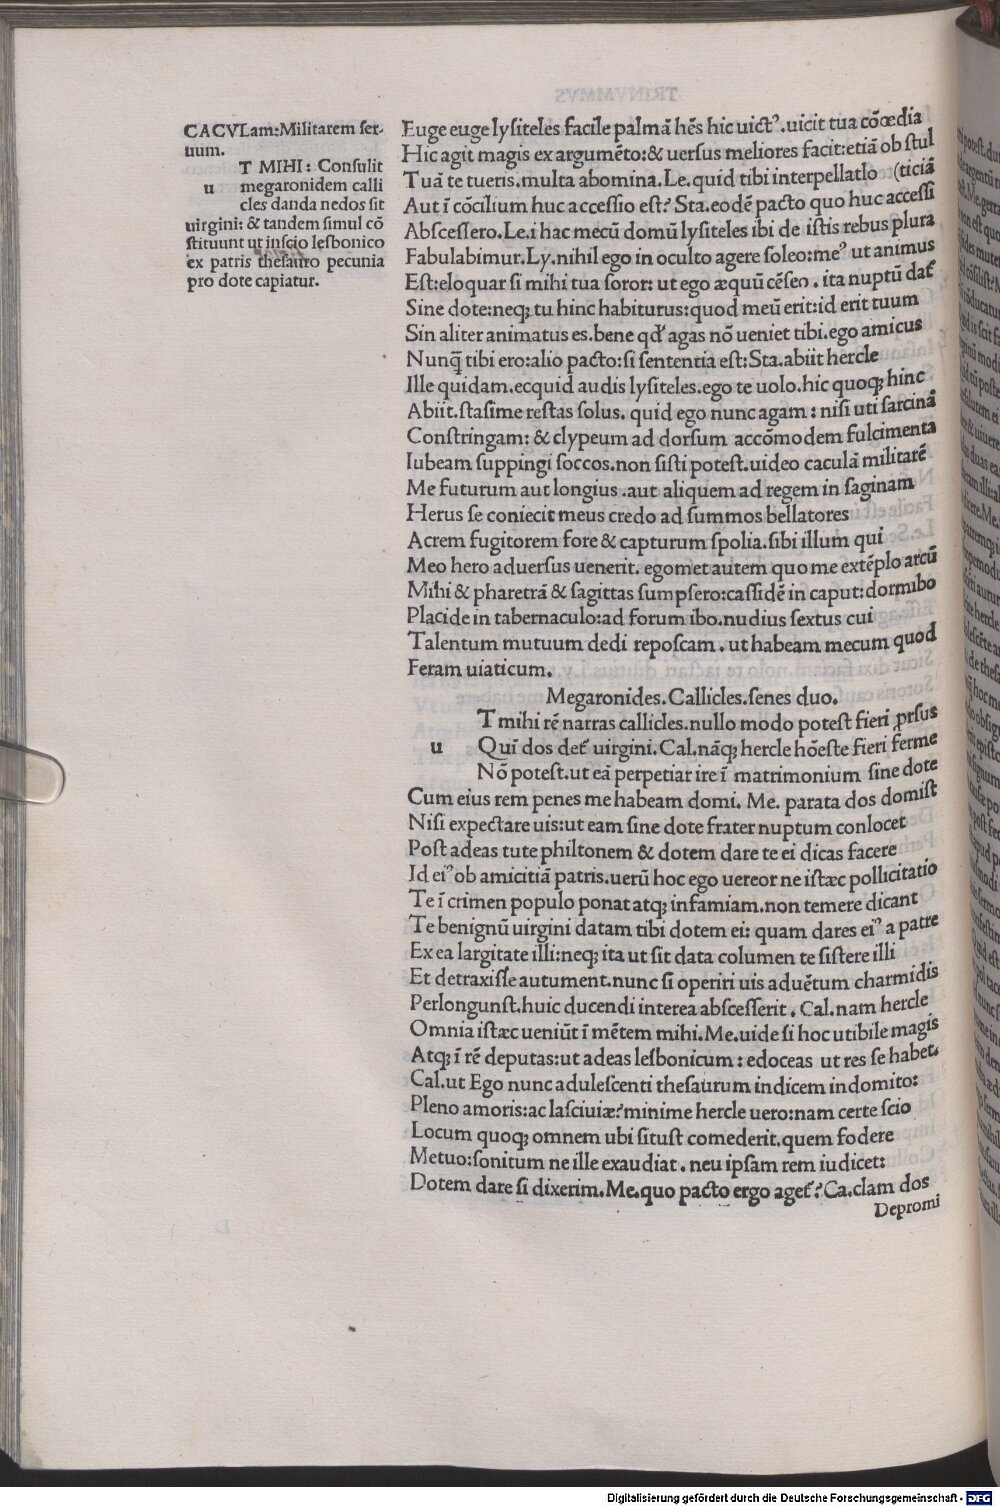 CACVLam:Militarem ſer-
uum.
T MIHI: Conſulit
u megaronidem calli
cles danda nedos ſit
uirgini: & tandem ſimul cō
ſtituunt ut inſcio leſbonico
ex patris theſauro pecunia
pro dote capiatur.
Euge euge lyſiteles facile palmā hēs hic uictꝰ.uicit tua cōœdia
Hic agit magis ex argumēto:& uerſus meliores facit:etiā ob ſtul
Tuā te tueris.multa abomina.Le.quid tibi interpellatlo (ticiā
Aut ī cōcilium huc acceſſio eſt? Sta.eodē pacto quo huc acceſſi
Abſceſſero.Le.i hac mecū domū lyſiteles ibi de iſtis rebus plura
Fabulabimur.Ly.nihil ego in oculto agere ſoleo:meꝰ ut animus
Eſt:eloquar ſi mihi tua ſoror: ut ego æquū cēſeo. ita nuptū dat̄
Sine dote:neqꝫ tu hinc habiturus:quod meū erit:id erit tuum
Sin aliter animatus es.bene qđ agas nō ueniet tibi.ego amicus
Nunq̄ tibi ero:alio pacto:ſi ſententia eſt:Sta.abiit hercle
Ille quidam.ecquid audis lyſiteles.ego te uolo.hic quoqꝫ hinc
Abiit.ſtaſime reſtas ſolus. quid ego nunc agam: niſi uti ſarcinā
Conſtringam: & clypeum ad dorſum accōmodem fulcimenta
Iubeam ſuppingi ſoccos.non ſiſti poteſt.uideo caculā militarē
Me futurum aut longius .aut aliquem ad regem in ſaginam
Herus ſe coniecit meus credo ad ſummos bellatores
Acrem fugitorem fore & capturum ſpolia.ſibi illum qui
Meo hero aduerſus uenerit. egomet autem quo me extēplo arcū
Mihi & pharetrā & ſagittas ſumpſero:caſſidē in caput:dormibo
Placide in tabernaculo:ad forum ibo.nudius ſextus cui
Talentum mutuum dedi repoſcam . ut habeam mecum quod
Feram uiaticum.
Megaronides.Callicles.ſenes duo.
T mihi rē narras callicles.nullo modo poteſt fieri ꝓrſus
u Quī dos det̄ uirgini.Cal.nāqꝫ hercle hōeſte fieri ferme
Nō poteſt.ut eā perpetiar ire ī matrimonium ſine dote
Cum eius rem penes me habeam domi. Me. parata dos domiſt
Niſi expectare uis:ut eam ſine dote frater nuptum conlocet
Poſt adeas tute philtonem & dotem dare te ei dicas facere
Id eiꝰ ob amicitiā patris.uerū hoc ego uereor ne iſtæc pollicitatio
Te ī crimen populo ponat atqꝫ infamiam.non temere dicant
Te benignū uirgini datam tibi dotem ei: quam dares eiꝰ a patre
Ex ea largitate illi:neqꝫ ita ut ſit data columen te ſiſtere illi
Et detraxiſſe autument.nunc ſi operiri uis aduētum charmidis
Perlongunſt.huic ducendi interea abſceſſerit . Cal.nam hercle
Omnia iſtæc ueniūt ī mētem mihi.Me.uide ſi hoc utibile magis
Atqꝫ ī rē deputas:ut adeas leſbonicum: edoceas ut res ſe habet.
Cal.ut Ego nunc aduleſcenti theſaurum indicem indomito:
Pleno amoris:ac laſciuiæ?minime hercle uero:nam certe ſcio
Locum quoqꝫ omnem ubi ſituſt comederit.quem fodere
Metuo:ſonitum ne ille exaudiat . neu ipſam rem iudicet:
Dotem dare ſi dixerim.Me.quo pacto ergo aget̄?Ca.clam dos
Depromi
Digitalisierung gefördert durch die Deutsche Forschungsgemeinschaft - DFG